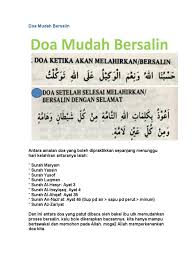 Doa Mudah Bersalin
Doa Mudah Bersalin
DOA KETIKA AKAN MELAHIRKAN/BERSALIN
حَسْبُنَا اللَّهُ وَنِعْمَ الْوَكِيْلُ عَلَى اللَّهِ تَوَكَّلْتُ
DOA SETELAH SELESAI MELAHIRKAN/
BERSALIN DENGAN SELAMAT
أَعُوْذُ بِكَلِمَاتِ اللَّهِ التَّامَّاتِ كُلِّهَا مِنْ شَرِّ مَا خَلَقَ
Antara amalan doa yang boleh dipraktikkan sepanjang menunggu
hari kelahiran antaranya ialah:
* Surah Maryam
* Surah Yassin
* Surah Yusof
* Surah Luqman
* Surah Al-Hasyr: Ayat 3
* Surah Al-Insyiqaq: Ayat 4
* Surah Al-Anbiya: Ayat
* Surah An-Nahl: Ayat 78 (Sup pd air > sapu pd perut > minum)
* Surah Az-Zariyat
Dan ini antara doa yang patut dibaca oleh bakal ibu utk memudahkan
proses bersalin. kalu boleh dikerapkan bacaannya. kita hanya mampu
bertawakal dan memohon pada Allah. moga2 Allah memperkenankan
doa kita